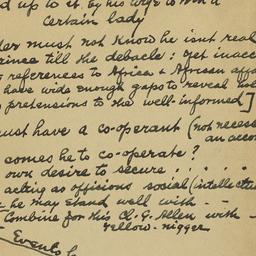 d up to it by his wife to win a
certain lady
der must not know he isnt real
prince till the debacle: yet inacc
references to Africa & African affa
have wide enough gaps to reveal
pretensions to the well-informed]
must have a co-operant (not necess
an acco
comes he to co-operate?
own desire to secure . . . . .
acting as officious social (intelle
he may stand well with - -
Combine for this Cl. G. Allen with -
yellow-nigger
Events